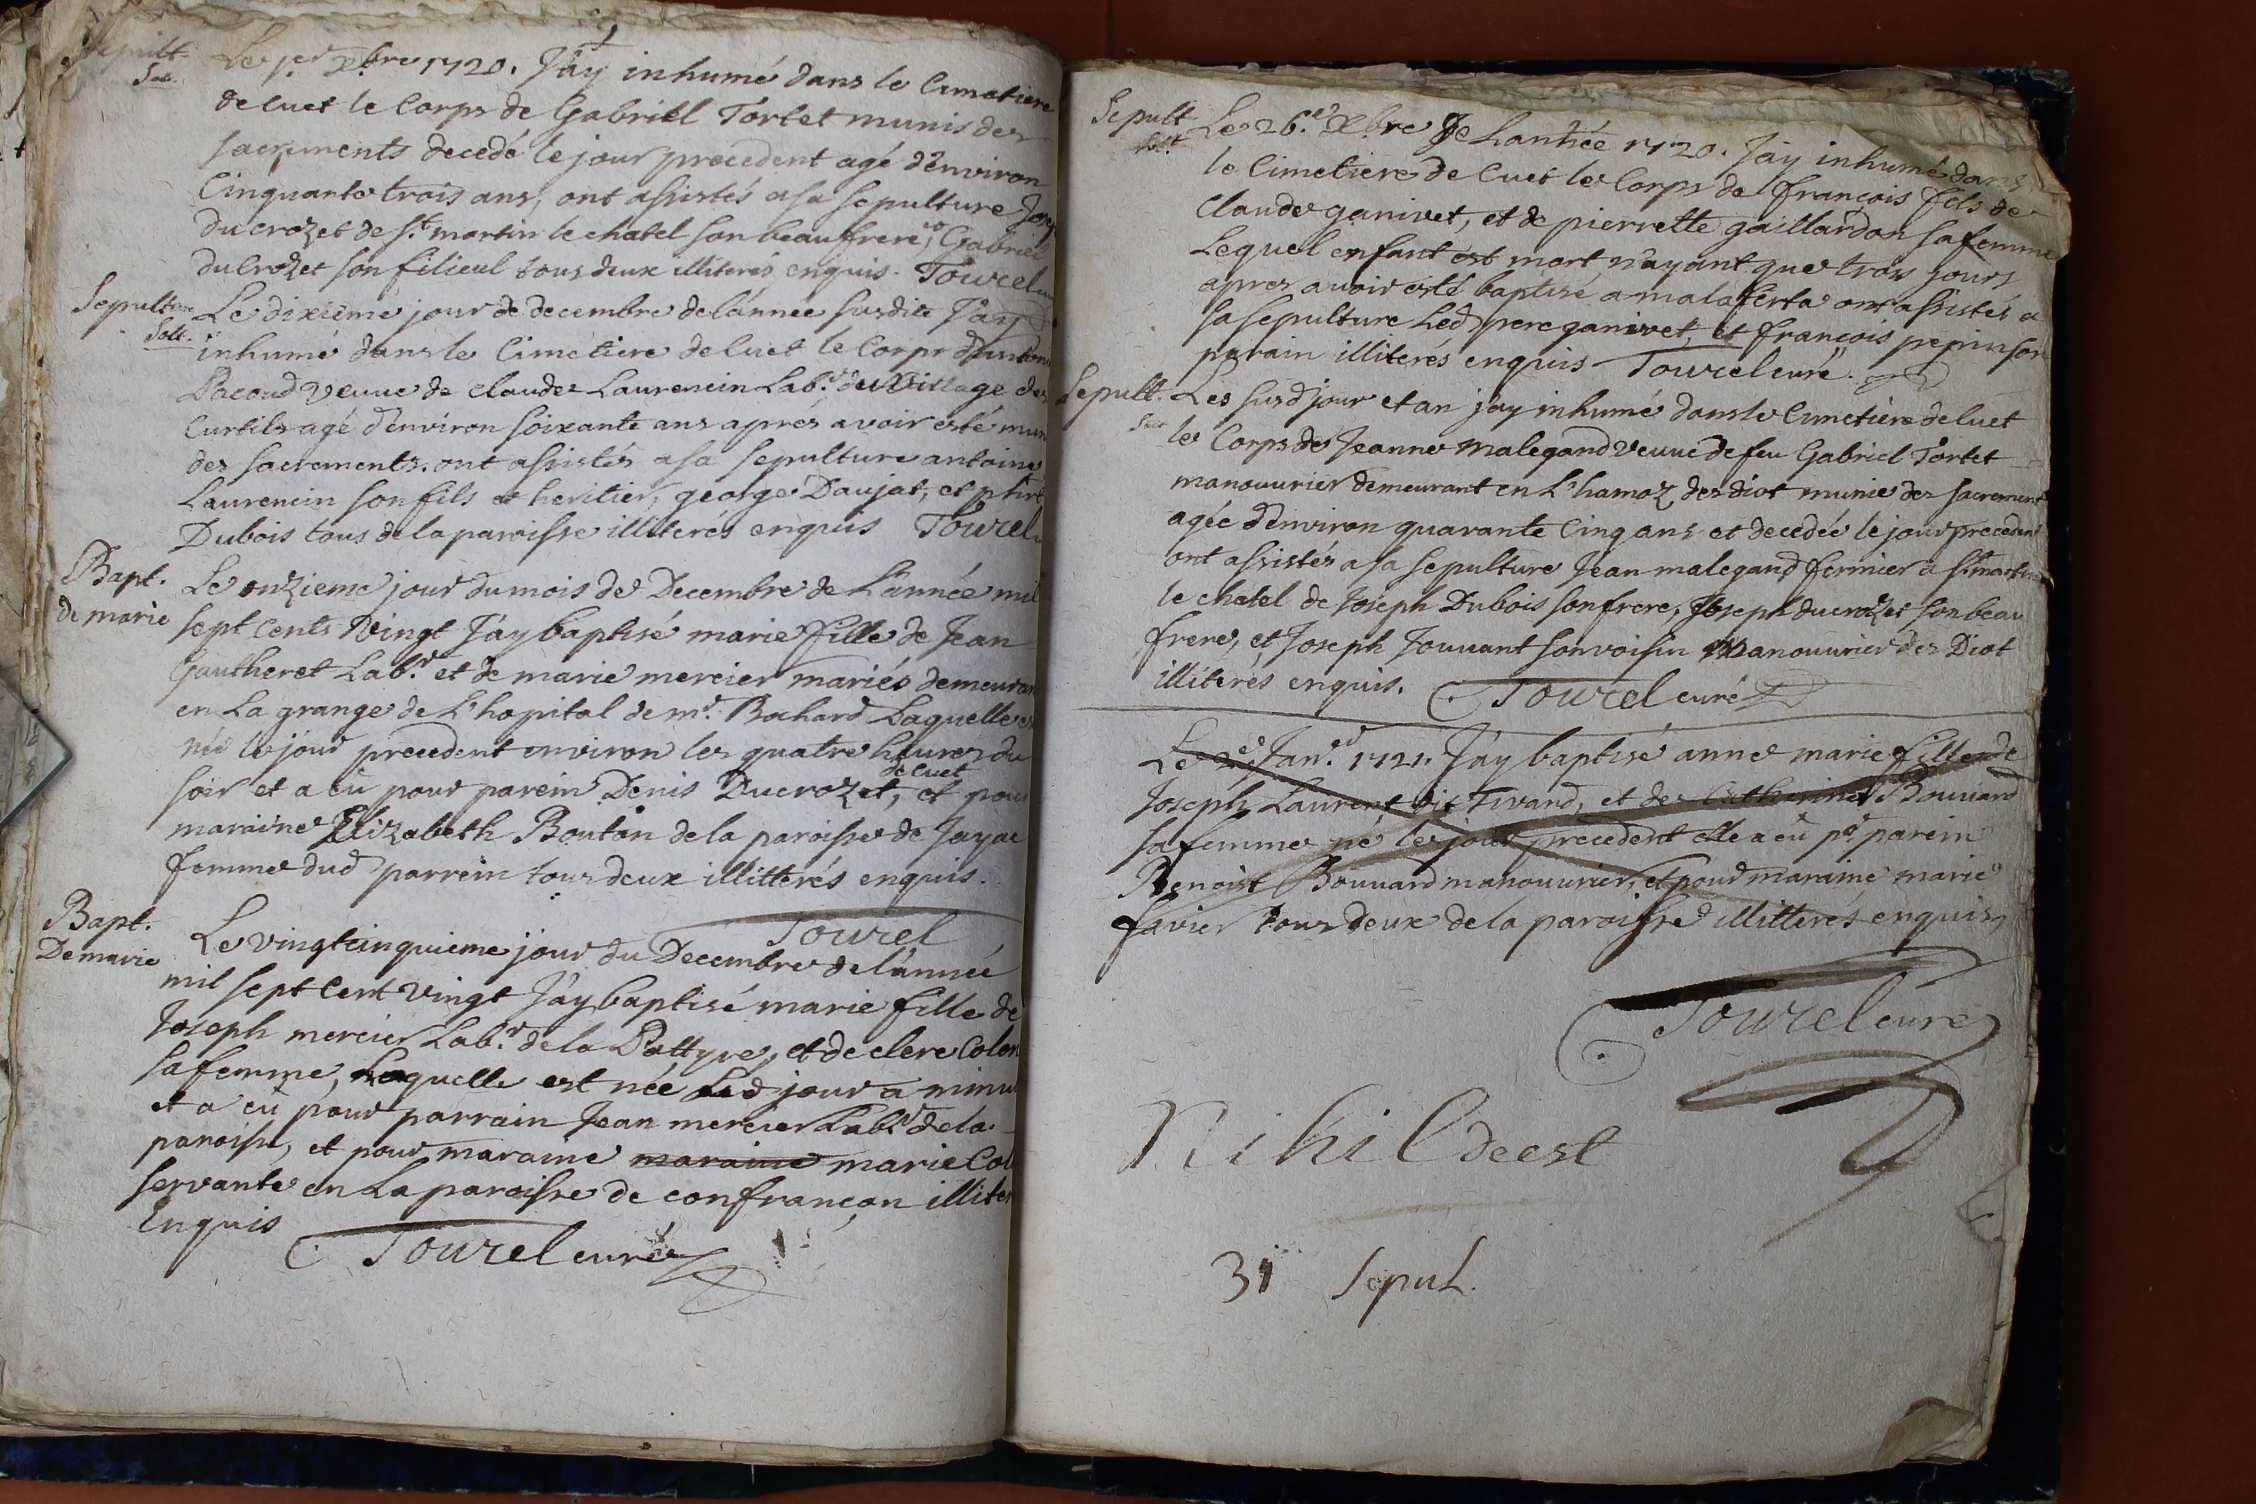 Sepult
Le 1.er Xbre 1720. J'ay inhumé dans le Cimetiere
de Cuet le Corps de Gabriel Tortet munis des
sacrements decedé le jour precedent agé d'environ
Cinquante trois ans, ont assistés a sa sepulture Jos
du crozet de s.t martin le chatel son beaufrere, Gabriel
du Crozet son filieul tous deux illiterés enquis. Tourel
Sepulture
Solt.
Le dixième jour de decembre de l'année susdite J'ay
inhumé dans le Cimetiere de Cuet le Corps
Pacoud veuve de claude Laurencin Lab.r du Village des
Curtils agé d'environ soixante ans aprés avoir esté mun
des sacrements. ont assistés a sa sepulture antoine
Laurencin son fils et heritier, george Daujat, et
Dubois tous de la paroisse illiterés enquis Tourel
Bapt.
de marie
Le onzieme jour du mois de Decembre de L'année mil
sept Cents Vingt J'ay baptisé marie fille de Jean
Gautheret Lab.r et de marie mercier mariés demeuran
en La grange de L'hopital de m.r Bochard Laquelle
née le jour precedent environ les quatre heures du
soir et a eû pour parein Denis Ducrozet, de Cuet et pour
maraine Elizabeth Boutan de la paroisse de Jayac
femme dud parrein tous deux illitterés enquis.
Tourel
Bapt.
De marie
Le vingtcinquieme jour du Decembre de l'année
mil sept Cent vingt J'ay baptisé marie fille de
Joseph mercier Lab.r de la Pattyre, et de clere Colon
sa femme, Laquelle est née Led jour a minu
et a eû pour parrain Jean mercier Lab.r de la
paroisse, et pour maraine maraine marie Col
servante en La paroisse de confrançon illiter
Enquis
Tourel curé
Sepult
Le 26.e Xbre De Lanneé 1720. J'ay inhumé dans
le Cimetiere de Cuet le Corps de françois fils de
Claude ganivet, et de pierrette gaillardon sa femme
Lequel enfant est mort n'ayant que trois jours
apres avoir esté baptisé a malaferta ont assistés a
sa sepulture Led pere ganivet, et françois pepin son
parain illiterés enquis Tourel curé.
Sepult.
Les susd jour et an j'ay inhumé dans le Cimetière de Cuet
le Corps de Jeanne malegand veuve de feu Gabriel Tortet
manouurier demeurant en L'hamoz des diot munie des sacrement
agée d'environ quarante Cinq ans et decedée le jour precedent
ont assistés a sa sepulture Jean malegand fermier a s.t martin
le chatel de Joseph Dubois son frere, Joseph ducrozet son beau
frere, et Joseph Jouuant son voisin manouurier des Diot
illiterés enquis. Tourel curé
Le 2.e Jan.r 1721. J'ay baptisé anne marie fille de
Joseph Laurent dit Tivand, et de Catherine Bouuard
sa femme né le jour precedent elle a eû p.r parein
Benoist Bouuard manouurier, et pour maraine marie
favier tous deux de la paroisse illitterés enquis
Tourel curé
Nihil deest
31 Sepul.